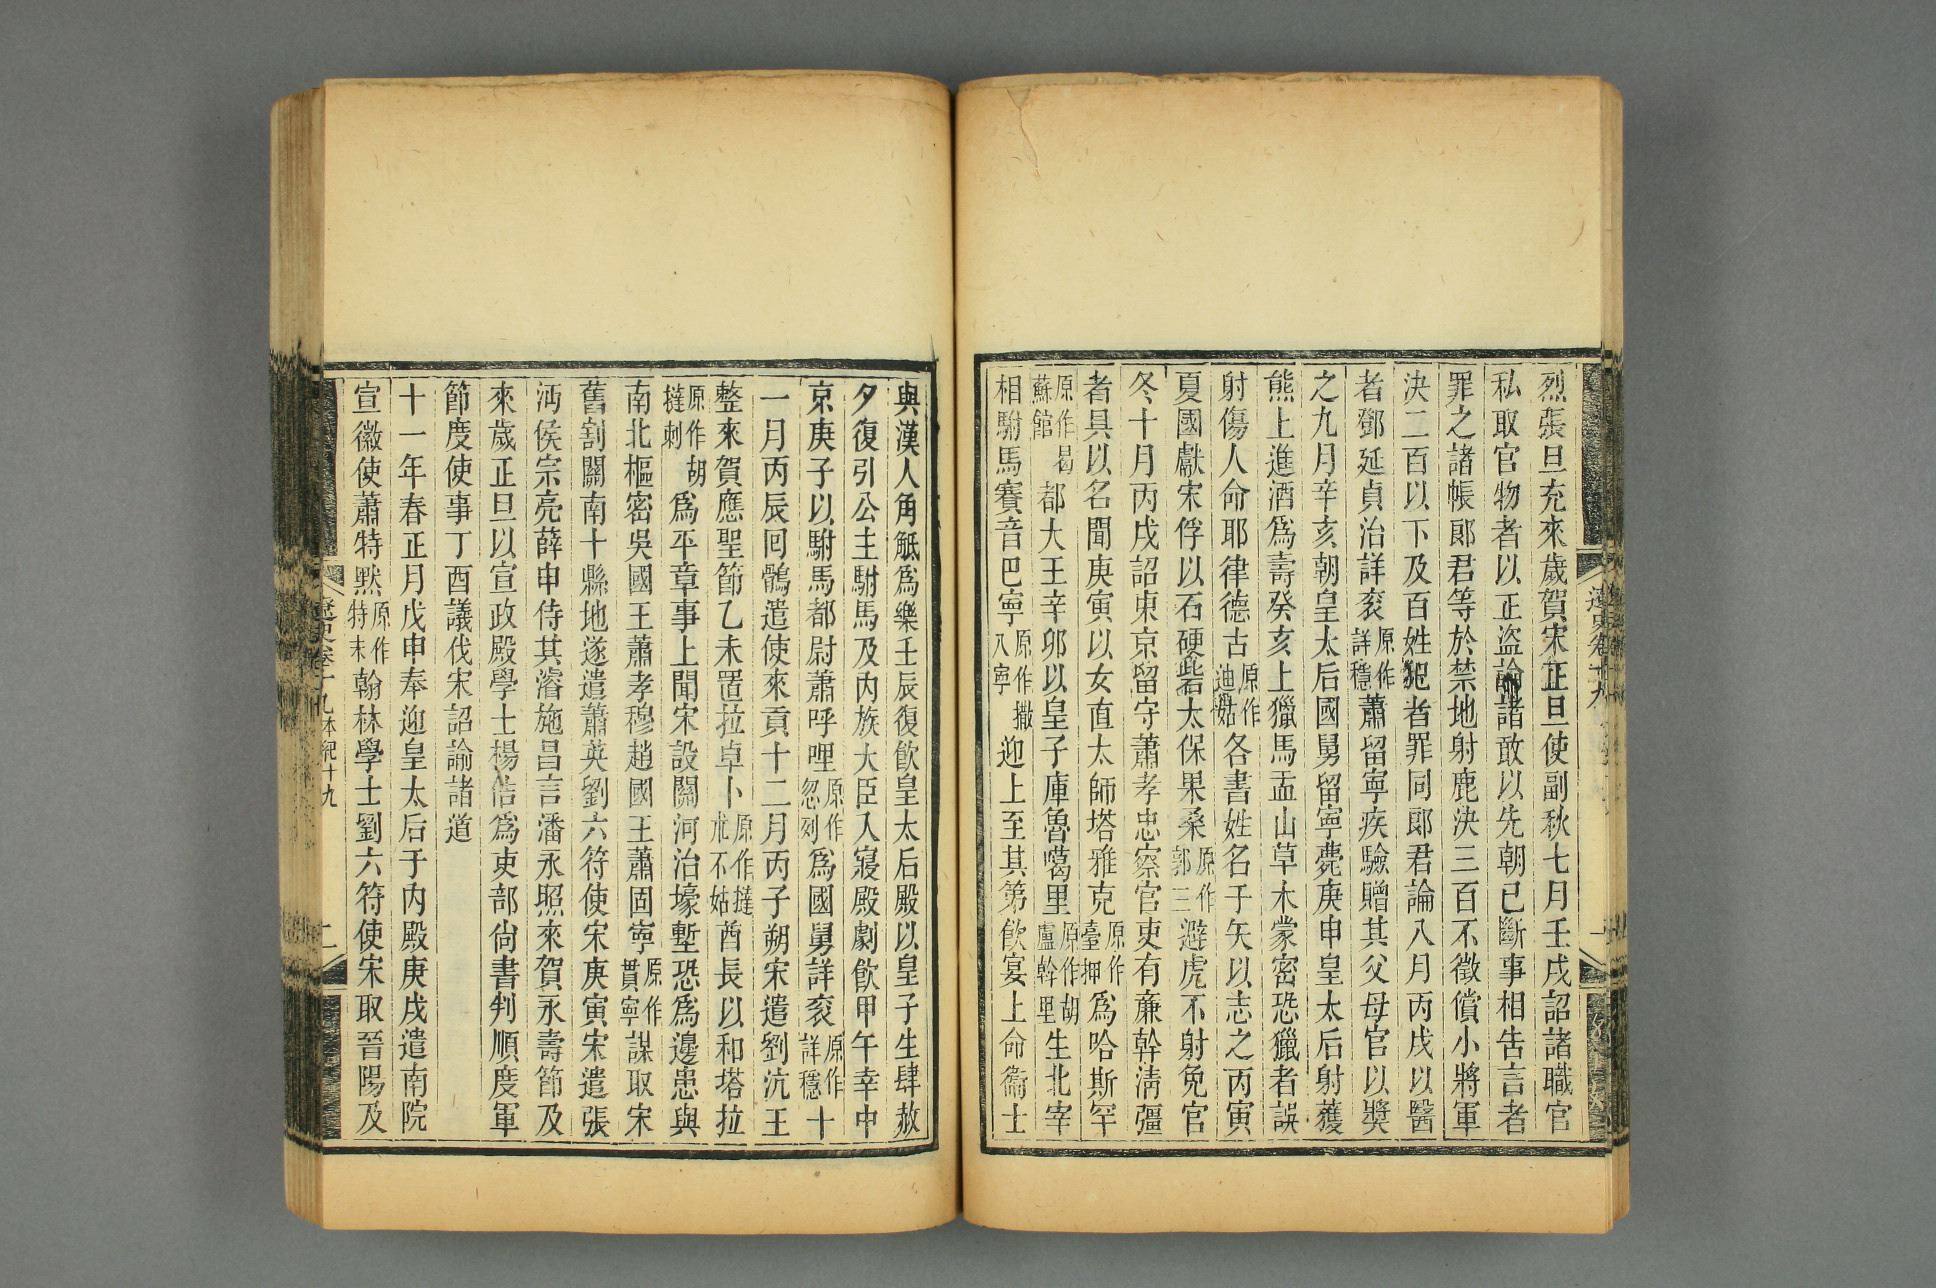 烈張旦充來歲賀宋正旦使副秋七月壬戌詔諸職官
私取官物者以正盜論諸敢以先朝已斷事相告言者
罪之諸帳郎君等於禁地射鹿決三百不徵償小將軍
決二百以下及百姓犯者罪同郎君論八月丙戌以醫
者鄧延貞治詳袞原作詳穩蕭留寧疾驗贈其父母官以奬
之九月辛亥朝皇太后國舅留寧薨庚申皇太后射獲
熊上進酒爲壽癸亥上獵馬盂山草木蒙密恐獵者誤
射傷人命耶律德古原作迪姑各書姓名于矢以志之丙寅
夏國獻宋俘以石硬砦太保果桑原作郭三避虎不射免官
冬十月丙戌詔東京留守蕭孝忠察官吏有廉幹淸彊
者具以名聞庚寅以女直太師塔雅克原作臺押爲哈斯罕
原作曷蘇館都大王辛卯以皇子庫魯噶里原作胡盧斡里生北宰
相駙馬賽音巴寧原作撒八寧迎上至其第飮宴上命衞士
遼史卷十九
與漢人角觝爲樂壬辰復飮皇太后殿以皇子生肆赦
夕復引公主駙馬及內族大臣入寢殿劇飮甲午幸中
京庚子以駙馬都尉蕭呼哩原作忽列爲國舅詳袞原作詳穩十
一月丙辰回鶻遣使來貢十二月丙子朔宋遣劉沆王
整來賀應聖節乙未置拉卓卜原作撻朮不姑酋長以和塔拉
原作胡撻剌爲平章事上聞宋設關河治壕塹恐爲邊患與
南北樞密吳國王蕭孝穆趙國王蕭固寧原作貫寧謀取宋
舊割關南十縣地遂遣蕭英劉六符使宋庚寅宋遣張
沔侯宗亮薛申侍其濬施昌言潘永照來賀永壽節及
來歲正旦以宣政殿學士楊佶爲吏部尙書判順度軍
節度使事丁酉議伐宋詔諭諸道
十一年春正月戊申奉迎皇太后于內殿庚戌遣南院
宣徽使蕭特默原作特末翰林學士劉六符使宋取晉陽及
遼史卷十九 本紀十九
二